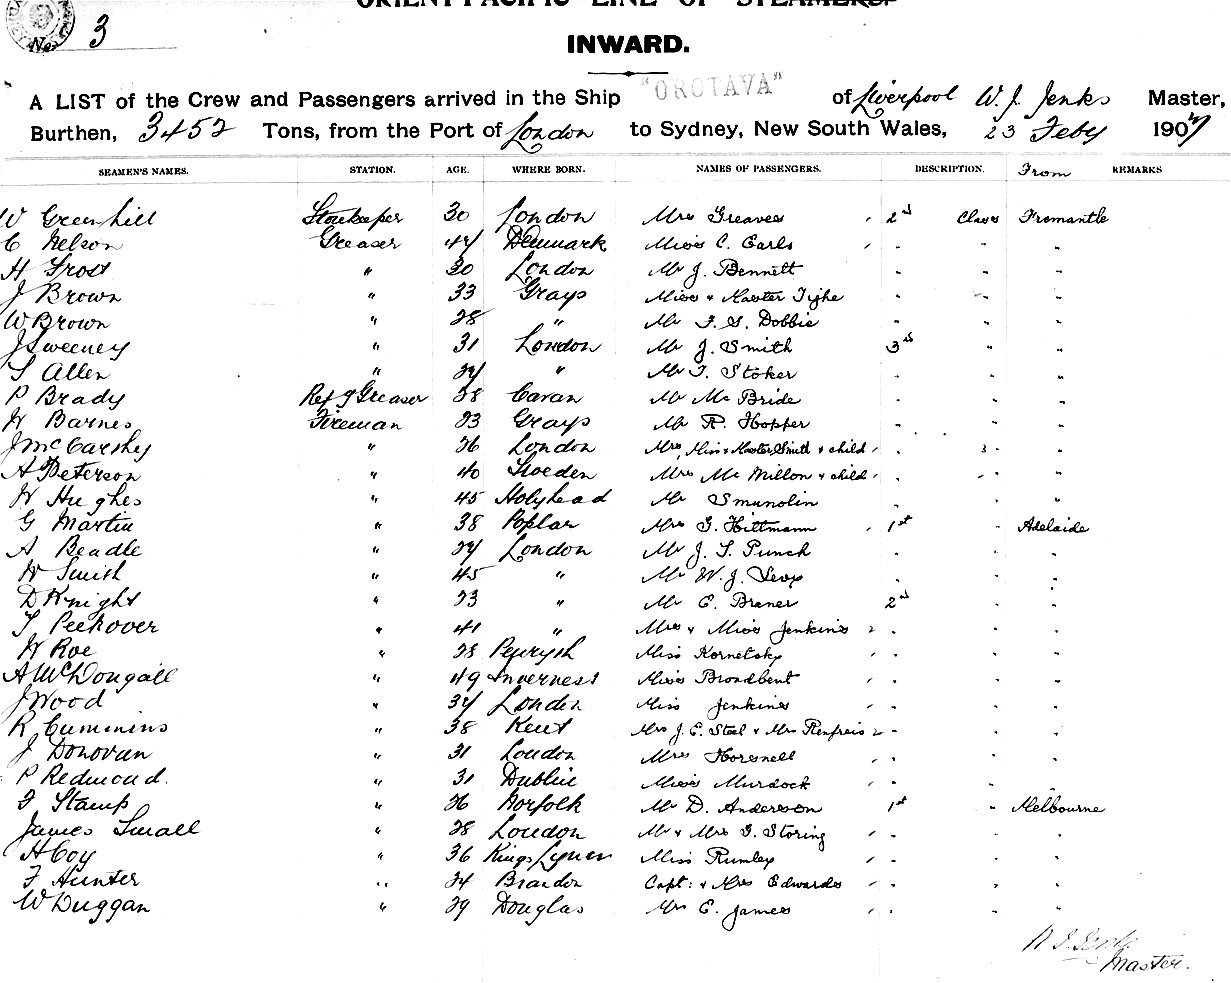 ORIENT-PACIFIC LINE OF STEAMERS.
No. 3
INWARD.
A LIST of the Crew and Passengers arrived in the Ship "OROTAVA" of Liverpool W. J. Jenks Master,
Burthen, 3452 Tons, from the Port of London to Sydney, New South Wales, 23 Feby 1907
SEAMEN'S NAMES. STATION. AGE. WHERE BORN. NAMES OF PASSENGERS. DESCRIPTION. From REMARKS
W Greenhill Storekeeper 30 London Mrs Greaves , 2nd Class Fremantle
C Nelson Greaser 47 Denmark Miss C. Earls , " " "
H Frost " 30 London Mr J. Bennett " " "
J Brown " 33 Grays Miss & Master Tighe " " "
W Brown " 28 " Mr F. G. Dobbie " " "
J Sweeney " 31 London Mr J. Smith 3rd " "
S Allen " 27 " Mr T. Stoker " " "
P Brady Ref g Greaser 38 Cavan Mr Mc Bride " " "
W Barnes Fireman 23 Grays Mr R. Hopper " " "
J McCarthy " 26 London Mrs, Miss & Master Smith & child , " " "
A Peterson " 40 Sweden Mrs Mc Millon & child , " " "
W Hughes " 45 Holyhead Mr " "
G Martin " 38 Poplar Mrs G. Hittmann , 1st " Adelaide
A Beadle " 27 London Mr J. S. Punch " " "
W Smith " 45 " Mr W. J. " " "
D Knight " 23 " Mr E. Braner 2nd " "
T Peckover " 41 " Mrs & Miss Jenkins 2 " " "
W Roe " 28 Miss Kornetsky , " " "
A McDougall " 49 Inverness Miss Broadbent , " " "
J Wood " 37 London Miss Jenkins , " " "
R Cummins " 38 Kent Mrs J. E. Steel & Mrs 2 " " "
J Donovan " 31 London Mrs Horsnell , " " "
P Redmond. " 31 Dublin Miss Murdock , " " "
F Stamp " 26 Norfolk Mr D. Anderson 1st " Melbourne
James Small " 28 London Mr & Mrs G. Storing , " " "
H Coy " 36 Kings Lynn Miss Rumley , " " "
F Hunter " 24 Brandon Capt: & Mrs Edwards , " " "
W Duggan " 29 Douglas Mrs E. James , " " "
W J Jenks
Master.